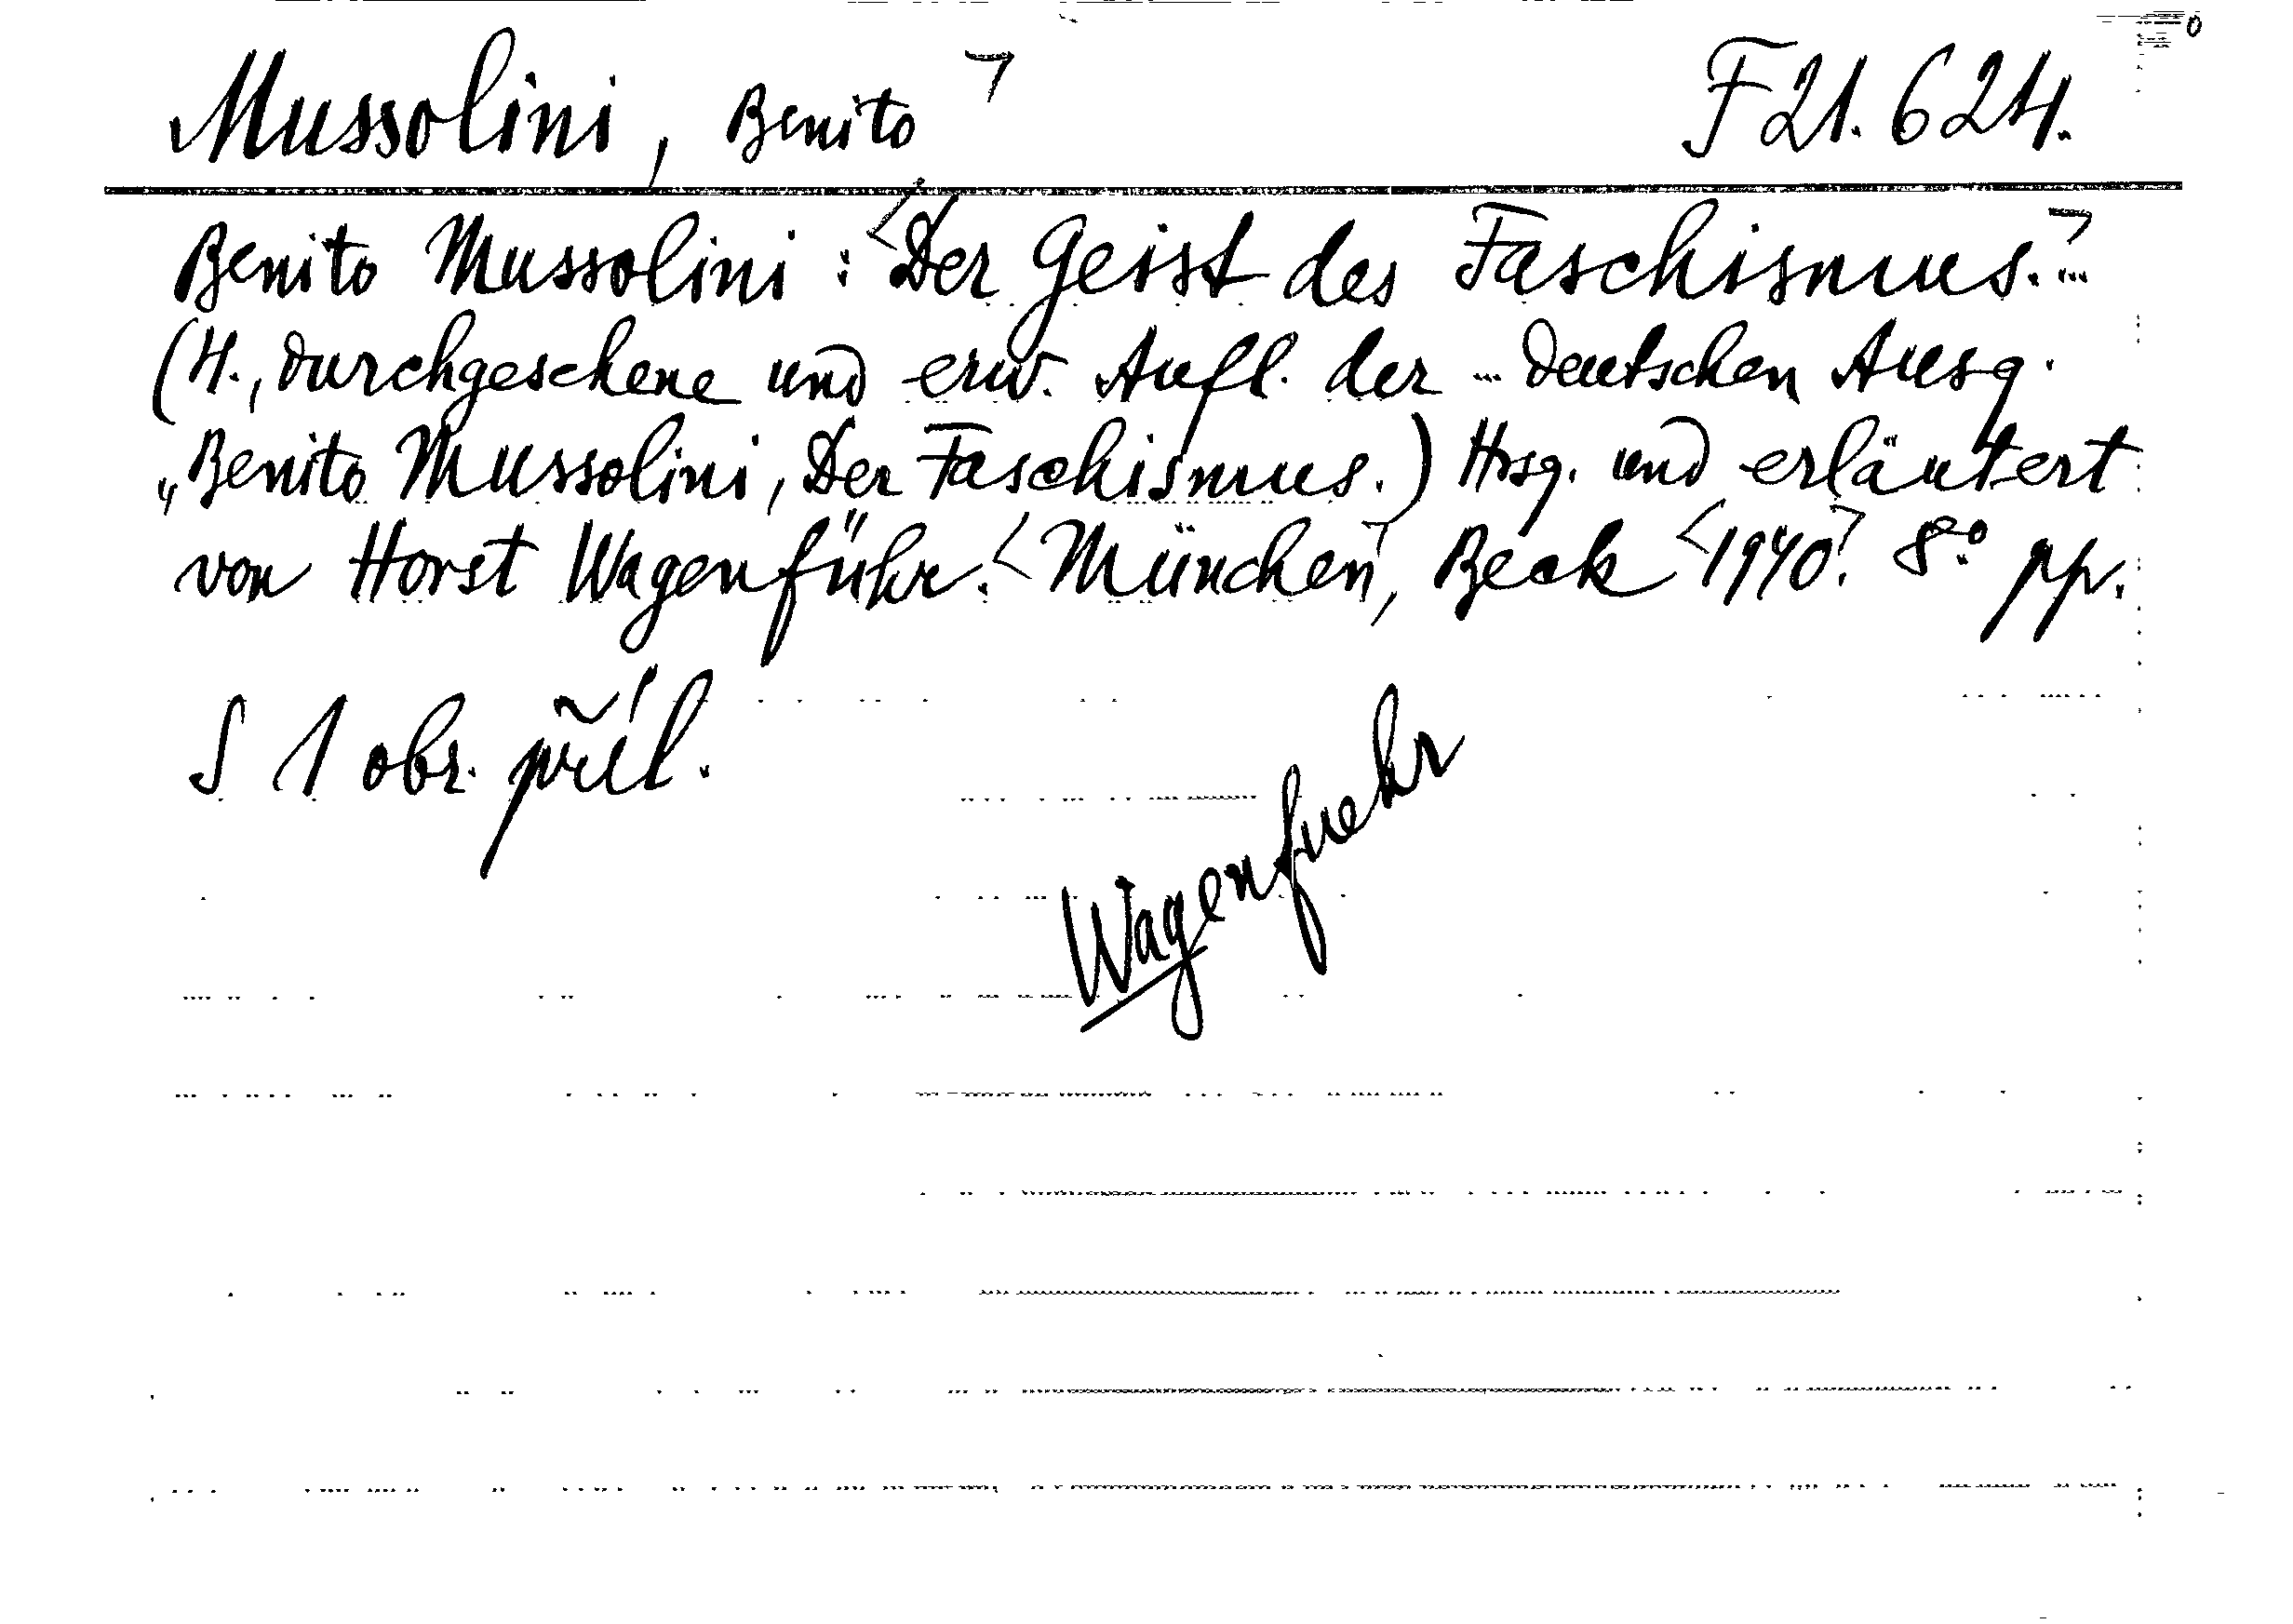 Mussolini, Benito ¬ F 21.624.
Benito Mussolini: <Der Geist des Faschismus.¬ ...
(4., durchgesehene und erw. Aufl. der ... deutschen Ausg.
„Benito Mussolini, Der Faschismus.) Hrsg. und erläutert
von Horst Wagenführ. <München¬, Beck <1940¬. 8° pp.
S 1 obr. příl.
Wagenfuehr